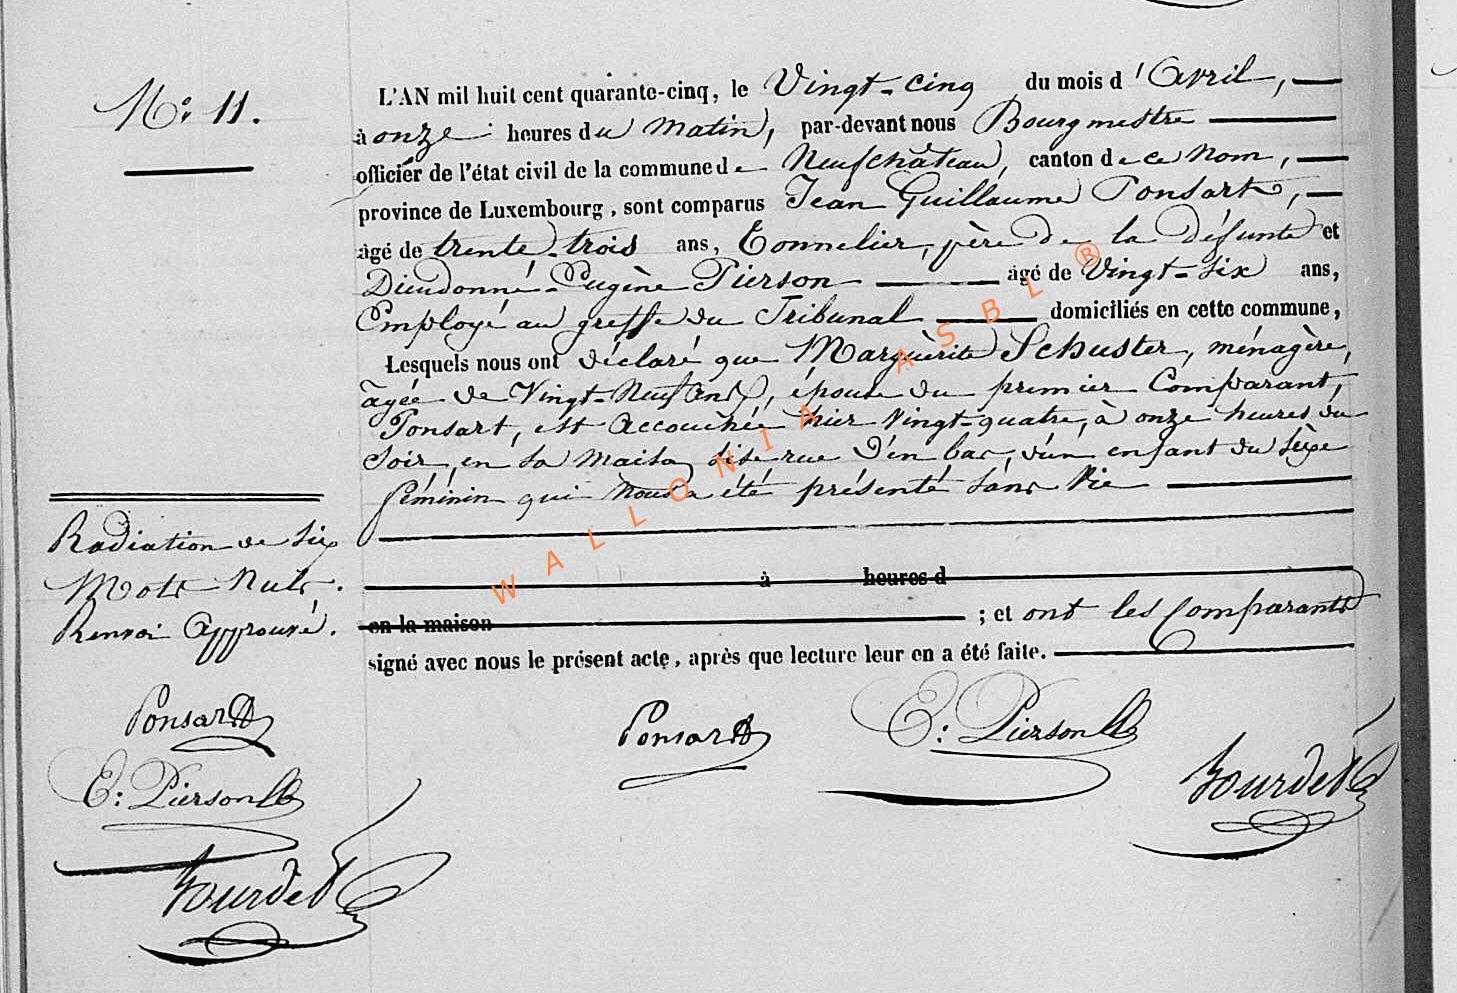 N.º 11.
L'AN mil huit cent quarante-cinq, le Vingt-cinq du mois d'Avril,
à onze heures du matin, par-devant nous Bourgmestre
officier de l'état civil de la commune de Neufchâteau, canton de ce Nom,
province de Luxembourg, sont comparus Jean Guillaume Ponsart,
âgé de trente-trois ans, Tonnelier, père de la défunte et
Dieudonné-Eugène Pierson âgé de Vingt-six ans,
Employé au greffe du Tribunal domiciliés en cette commune,
Lesquels nous ont déclaré que Marguèrite Schuster, ménagère,
âgée de Vingt-Neuf ans, épouse du premier Comparant,
Ponsart, est accouchée hier Vingt-quatre, à onze heures du
Soir, en sa maison sise rue d'en bas, d'un enfant du sèxe
féminin qui nous a été présenté sans Vie
à heures d
en la maison ; et ont les Comparants
signé avec nous le présent acte, après que lecture leur en a été faite.
Radiation de six
Mots Nuls.
Renvoi Approuvé.
Ponsart
E: Pierson
Bourdet
Ponsart
E: Pierson
Bourdet
WALLONIA ASBL ®